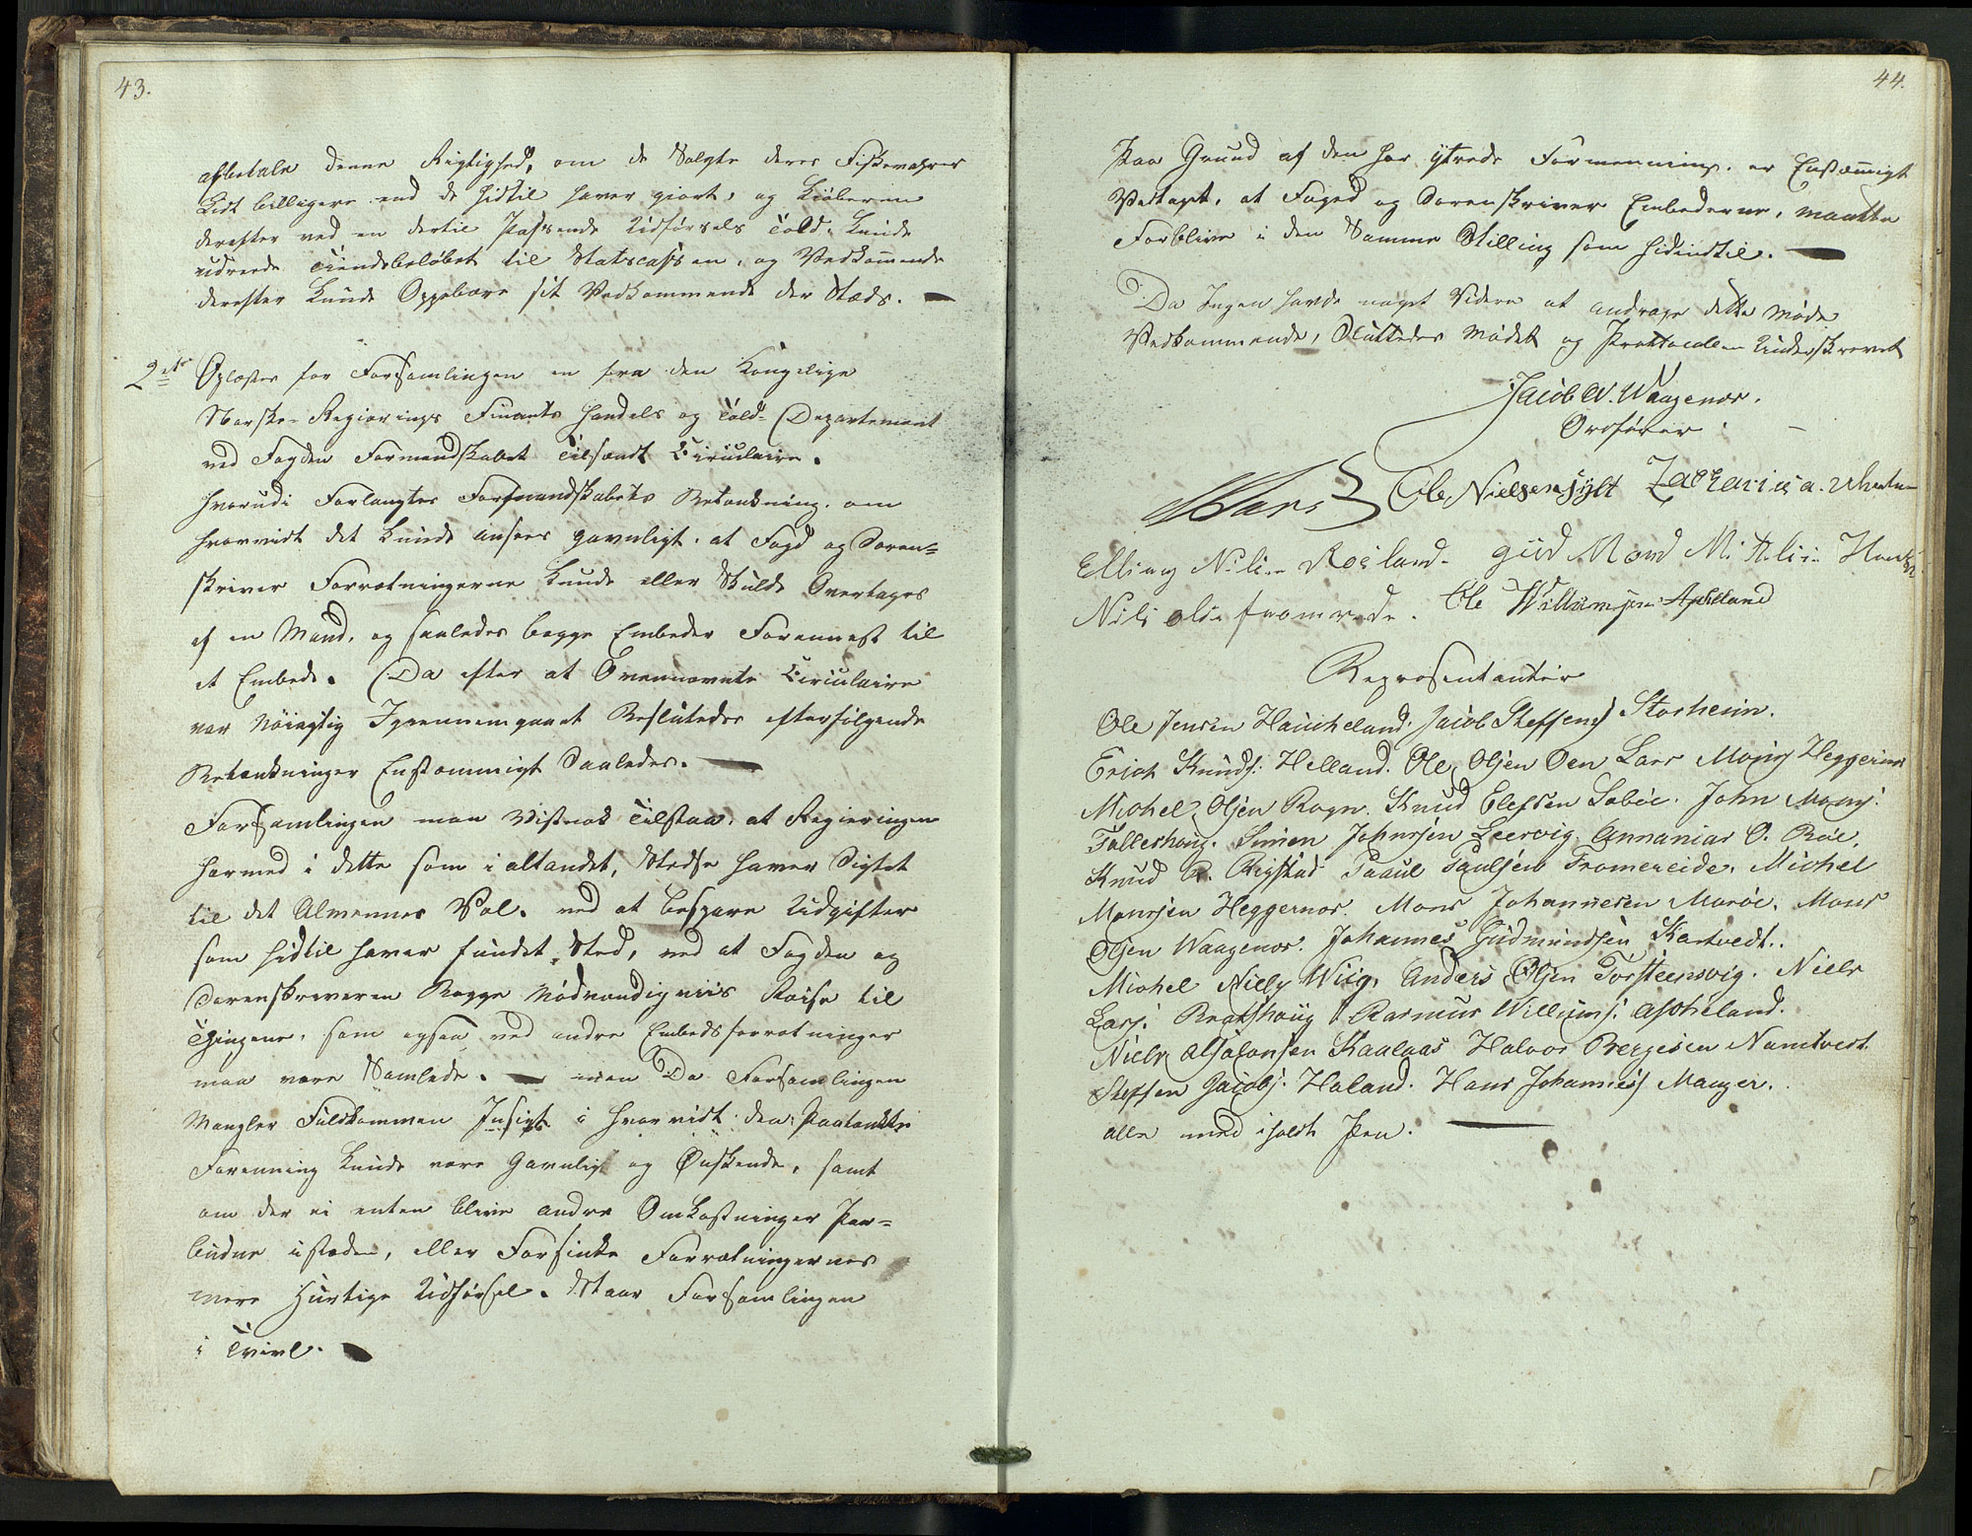 43.
afbetale denne Rigtighed, om de Solgte deres Fiskevahrer
Lidt billigere end de hidtil haver giort, og Kiøberne
derefter ved en dertil Passende Udførsels Told, kunde
udrede Tiendebeløbet til Statscassen, og Vedkommende
derefter kunde Oppebære sit Vedkommende der Stæds. —
2det Oplæstes for Forsamlingen en fra den Kongelige
Norske Regierings Finants Handels og Told-Departement
ved Fogden Formandskabet Tilsendt Circulaire.
hvorudi Forlangtes Formandskabets Betænkning, om
hvorvidt det kunde ansees gavnligt, at Fogd og Soren=
skriver Forretningerne kunde eller Skulde Overtages
af en Mand, og saaledes begge Embeder Forennest til
et Embede. Da efter at Ovennevnte Circulaire
var Nøiagtig Igiennemgaaet Besluttedes efterfølgende
Betænkninger Enstemmigt Saaledes. —
Forsamlingen maa Vistnok Tilstaa, at Regieringen
hermed i dette som i altandet, Stedse haver Sigtet
til det Almennes Vel. ved at bespare Udgifter
som hidtil haver fundet Sted, ved at Fogden og
Sorenskriveren Begge Nødvendigviis Reise til
Thingene, som ogsaa ved andre Embedsforretninger
maa være Samlede. — men Da Forsamlingen
Mangler Fuldkommen Insigt i hvorvidt den Paatænkte
Forenning kunde være Gavnligt og Ønskende, samt
om der ei enten blive andre Omkostninger Paa=
budne isteden, eller Forsinke Forretningernes
mere Hurtige Udførsel. Staar Forsamlingen
i Tvivl. —
44.
Paa Grund af den her ytrede Formenning, er Enstemmigt
Vedtaget, at Foged og Sorenskriver Embederne, maatte
Forblive i den Samme Stilling som hidindtil. —
Da Ingen havde noget Videre at andrage dette Møde
Vedkommende, Sluttedes Mødet og Protocollen Underskrevet
Jacob W. Waagenes.
Ordfører
Ole Nielsen Sylt Zacharias a.
Elling Nilsen Roeland
Nils olse fromrede. Ole Willumsen Askeland
Repræsentanter
Ole Jensen Haucheland. Jacob Steffens Storheim.
Erich Knuds: Helland. Ole Olsen Oen Lars Mons Heggernes
Michel Olsen Rogn. Knud Elefsen Sebøe. John Mons:
Fallershoug. Simen Johnsen Leervig. Annanias O. Bøe,
Knud R. Rigstad Paaul Paulsen Fromereide. Michel
Monsen Heggernes. Mons Johannesen Marøe. Mons
Olsen Waagenes. Johannes Gudmundsen Kartvedt.
Michel Niels Wiig, Anders Olsen Torsteensvig. Niels
Lars: Bratshoug Rasmus Willums: Askeland.
Niels Absalonsen Kaalaas Halvor Bergesen Namtvedt
Steffen Jacobs: Haland. Hans Johannes Manger.
alle med iholdt Pen. —